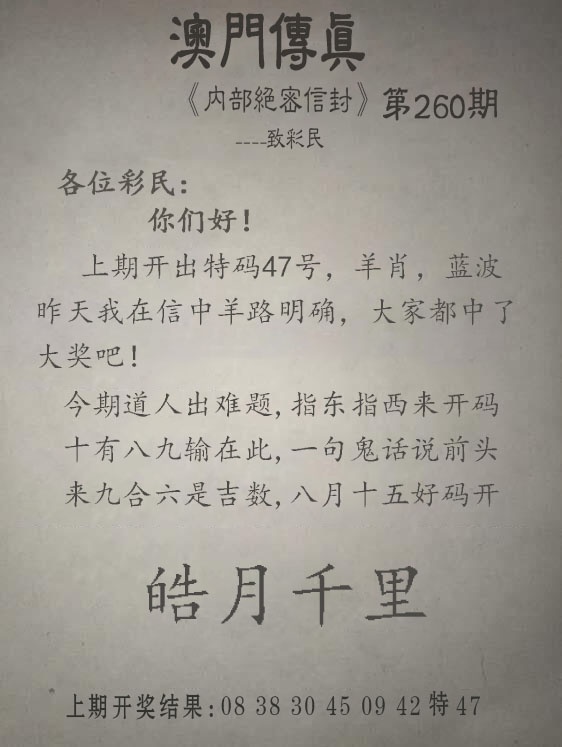 澳門傳真
《内部絕密信封》第260期
----致彩民
各位彩民：
你们好！
上期开出特码47号，羊肖，蓝波
昨天我在信中羊路明确，大家都中了
大奖吧！
今期道人出难题,指东指西来开码
十有八九输在此,一句鬼话说前头
来九合六是吉数,八月十五好码开
皓月千里
上期开奖结果:08 38 30 45 09 42特47